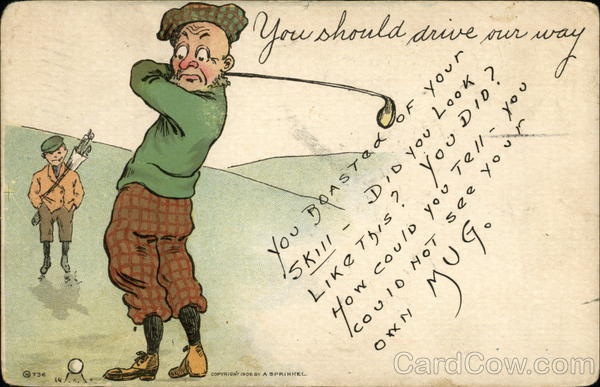 You should drive our way
YOU BOASTED OF YOUR
SKILL - DID YOU LOOK
LIKE THIS? YOU DID?
HOW COULD YOU TELL - YOU
COULD NOT SEE YOUR
OWN MUG.
736
COPYRIGHT 1906 BY A SPRINKEL
CardCow.com